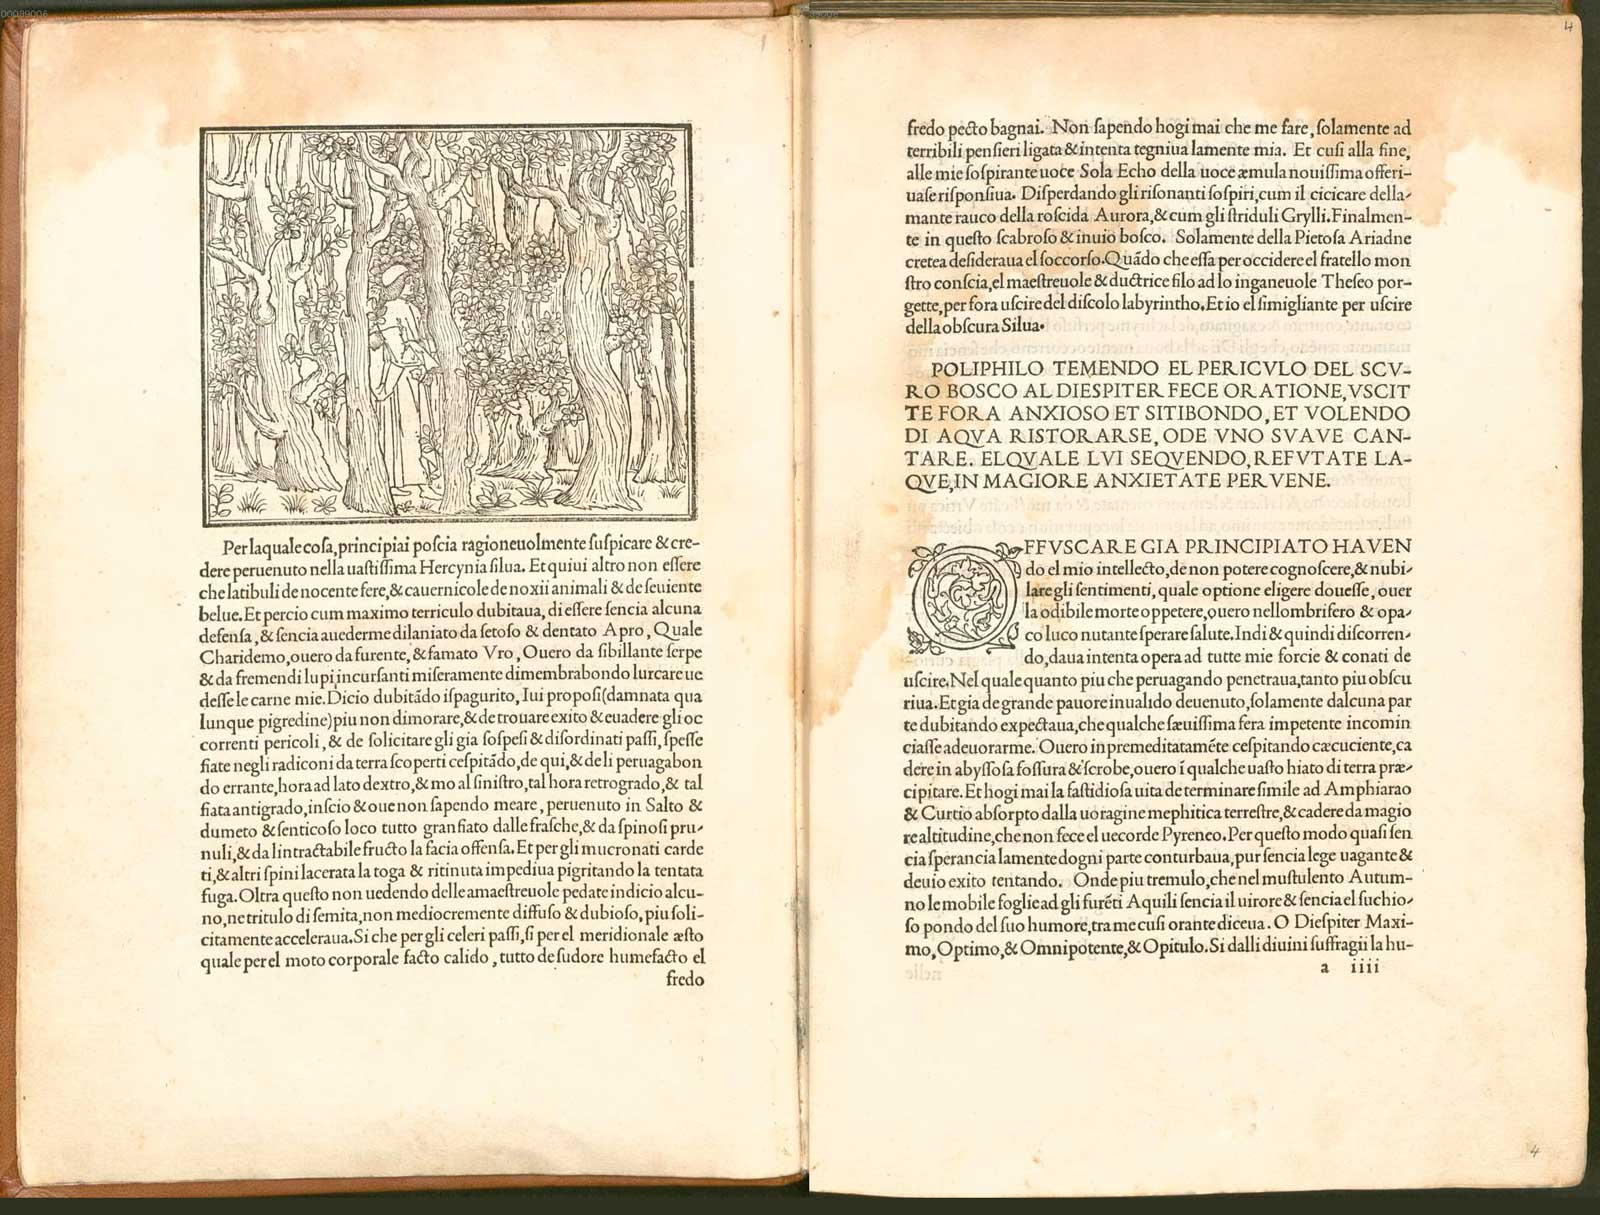 00089006
Per laquale cosa, principiai poscia ragioneuolmente suspicare & cre-
dere peruenuto nella uastissima Hercynia silua. Et quiui altro non essere
che latibuli de nocente fere, & cauernicole de noxii animali & de seuiente
belue. Et percio cum maximo terriculo dubitaua, di essere sencia alcuna
defensa, & sencia auederme dilaniato da setoso & dentato Apro, Quale
Charidemo, ouero da furente, & famato Vro, Ouero da sibillante serpe
& da fremendi lupi incursanti miseramente dimembrabondo lurcare ue
desse le carne mie. Dicio dubitādo ispagurito, Iui proposi (damnata qua
lunque pigredine) piu non dimorare, & de trouare exito & euadere gli oc
correnti pericoli, & de solicitare gli gia sospesi & disordinati passi, spesse
fiate negli radiconi da terra scoperti cespitādo, de qui, & de li peruagabon
do errante, hora ad lato dextro, & mo al sinistro, tal hora retrogrado, & tal
fiata antigrado, inscio & oue non sapendo meare, peruenuto in Salto &
dumeto & senticoso loco tutto granfiato dalle frasche, & da spinosi pru-
nuli, & da lintractabile fructo la facia offensa. Et per gli mucronati carde
ti, & altri spini lacerata la toga & ritinuta impediua pigritando la tentata
fuga. Oltra questo non uedendo delle amaestreuole pedate indicio alcu-
no, ne tritulo di semita, non mediocremente diffuso & dubioso, piu soli-
citamente acceleraua. Si che per gli celeri passi, si per el meridionale æsto
quale per el moto corporale facto calido, tutto de sudore humefacto el
fredo
4
fredo pecto bagnai. Non sapendo hogi mai che me fare, solamente ad
terribili pensieri ligata & intenta tegniua lamente mia. Et cusi alla fine,
alle mie sospirante uoce Sola Echo della uoce æmula nouissima offeri-
uase risponsiua. Disperdando gli risonanti sospiri, cum il cicicare della-
mante rauco della roscida Aurora, & cum gli striduli Grylli. Finalmen-
te in questo scabroso & inuio bosco. Solamente della Pietosa Ariadne
cretea desideraua el soccorso. Quādo che essa per occidere el fratello mon
stro conscia, el maestreuole & ductrice filo ad lo inganeuole Theseo por-
gette, per fora uscire del discolo labyrintho. Et io el simigliante per uscire
della obscura Silua.
POLIPHILO TEMENDO EL PERICVLO DEL SCV-
RO BOSCO AL DIESPITER FECE ORATIONE, VSCIT
TE FORA ANXIOSO ET SITIBONDO, ET VOLENDO
DI AQVA RISTORARSE, ODE VNO SVAVE CAN-
TARE. EL QVALE LVI SEQVENDO, REFVTATE LA-
QVE, IN MAGIORE ANXIETATE PERVENE.
OFFVSCARE GIA PRINCIPIATO HAVEN
do el mio intellecto, de non potere cognoscere, & nubi-
lare gli sentimenti, quale optione eligere douesse, ouer
la odibile morte oppetere, ouero nellombrifero & opa-
co luco nutante sperare salute. Indi & quindi discorren-
do, daua intenta opera ad tutte mie forcie & conati de
uscire. Nel quale quanto piu che peruagando penetraua, tanto piu obscu
riua. Et gia de grande pauore inualido deuenuto, solamente dalcuna par
te dubitando expectaua, che qualche sæuissima fera impetente incomin
ciasse adeuorarme. Ouero inpremeditatamēte cespitando cæcuciente, ca
dere in abyssosa fossura & scrobe, ouero ī qualche uasto hiato di terra præ-
cipitare. Et hogi mai la fastidiosa uita de terminare simile ad Amphiarao
& Curtio absorpto dalla uoragine mephitica terrestre, & cadere da magio
re altitudine, che non fece el uecorde Pyreneo. Per questo modo quasi sen
cia sperancia lamente dogni parte conturbaua, pur sencia lege uagante &
deuio exito tentando. Onde piu tremulo, che nel mustulento Autum-
no le mobile foglie ad gli furēti Aquili sencia il uirore & sencia el suchio-
so pondo del suo humore, tra me cusi orante diceua. O Diespiter Maxi-
mo, Optimo, & Omnipotente, & Opitulo. Si dalli diuini suffragii la hu-
a iiii
4